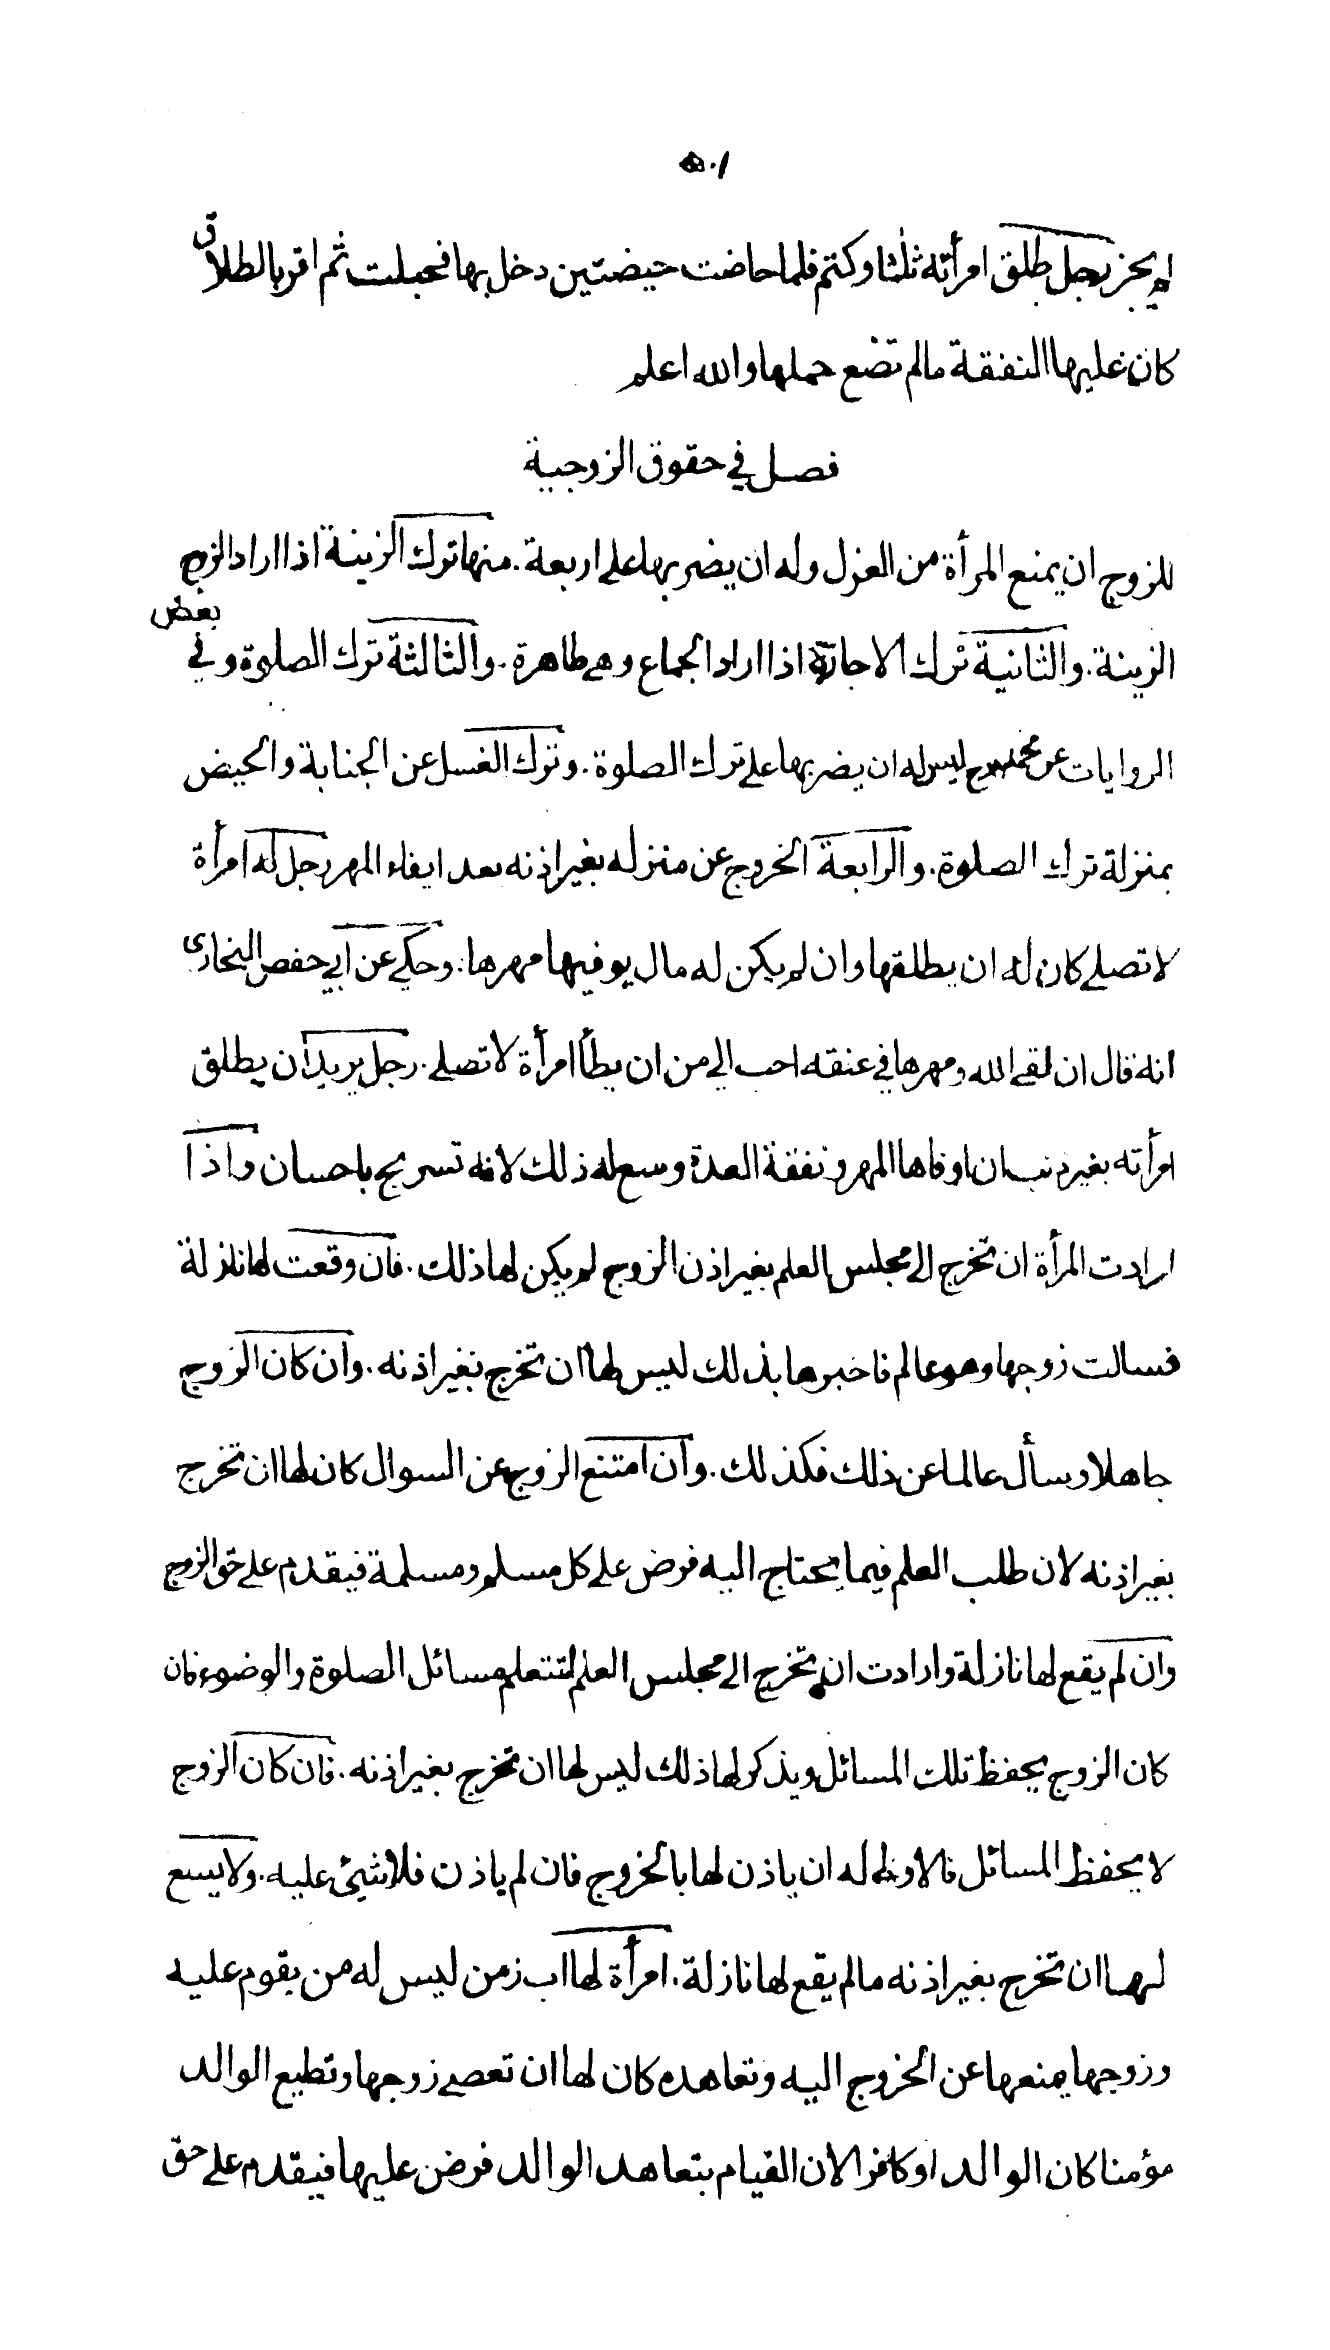 ٥٠١
لم يجز رجل طلق امرأته ثلثا وكتم فلما حاضت حيضتين دخل بها فحبلت ثم اقر بالطلاق
كان عليها النفقة مالم تضع حملها والله اعلم
فصل في حقوق الزوجية
للزوج ان يمنع المرأة من الغزل وله ان يضربها على اربعة. منها ترك الزينة اذا اراد الزوج
الزينة. والثانية ترك الاجازة اذا اراد الجماع وهي طاهرة. والثالثة ترك الصلوة وفي بعض
الروايات عن محمد رح ليس له ان يضربها على ترك الصلوة. وترك الغسل عن الجنابة والحيض
بمنزلة ترك الصلوة. والرابعة الخروج عن منزله بغير اذنه بعد ايفاء المهر رجل له امرأة
لا تصلي كان له ان يطلقها وان لم يكن له مال يوفيها مهرها. وحكي عن ابي حفص البخارى
انه قال ان لقي الله ومهرها في عنقه احب الي من ان يطأ امرأة لا تصلي. رجل يريد ان يطلق
امرأته بغير ذنب ان اوفاها المهر ونفقة العدة وسع له ذلك لانه تسريح باحسان واذا
ارادت المرأة ان تخرج الى مجلس العلم بغير اذن الزوج لم يكن لها ذلك. فان وقعت لها نازلة
فسالت زوجها وهو عالم فاخبرها بذلك ليس لها ان تخرج بغير اذنه. وان كان الزوج
جاهلا وسأل عالما عن ذلك فكذلك. وان امتنع الزوج عن السوال كان لها ان تخرج
بغير اذنه لان طلب العلم فيما يحتاج اليه فرض على كل مسلم ومسلمة فيقدم على حق الزوج
وان لم يقع لها نازلة وارادت ان تخرج الى مجلس العلم لتتعلم مسائل الصلوة والوضوء فان
كان الزوج يحفظ تلك المسائل ويذكر لها ذلك ليس لها ان تخرج بغير اذنه. فان كان الزوج
لا يحفظ المسائل فالاولى له ان ياذن لها بالخروج فان لم ياذن فلا شيئ عليه. ولا يسع
لها ان تخرج بغير اذنه مالم يقع لها نازلة. امرأة لها اب زمن ليس له من يقوم عليه
وزوجها يمنعها عن الخروج اليه وتعاهده كان لها ان تعصي زوجها وتطيع الوالد
مؤمنا كان الوالد او كافرا لان القيام بتعاهد الوالد فرض عليها فيقدم على حق